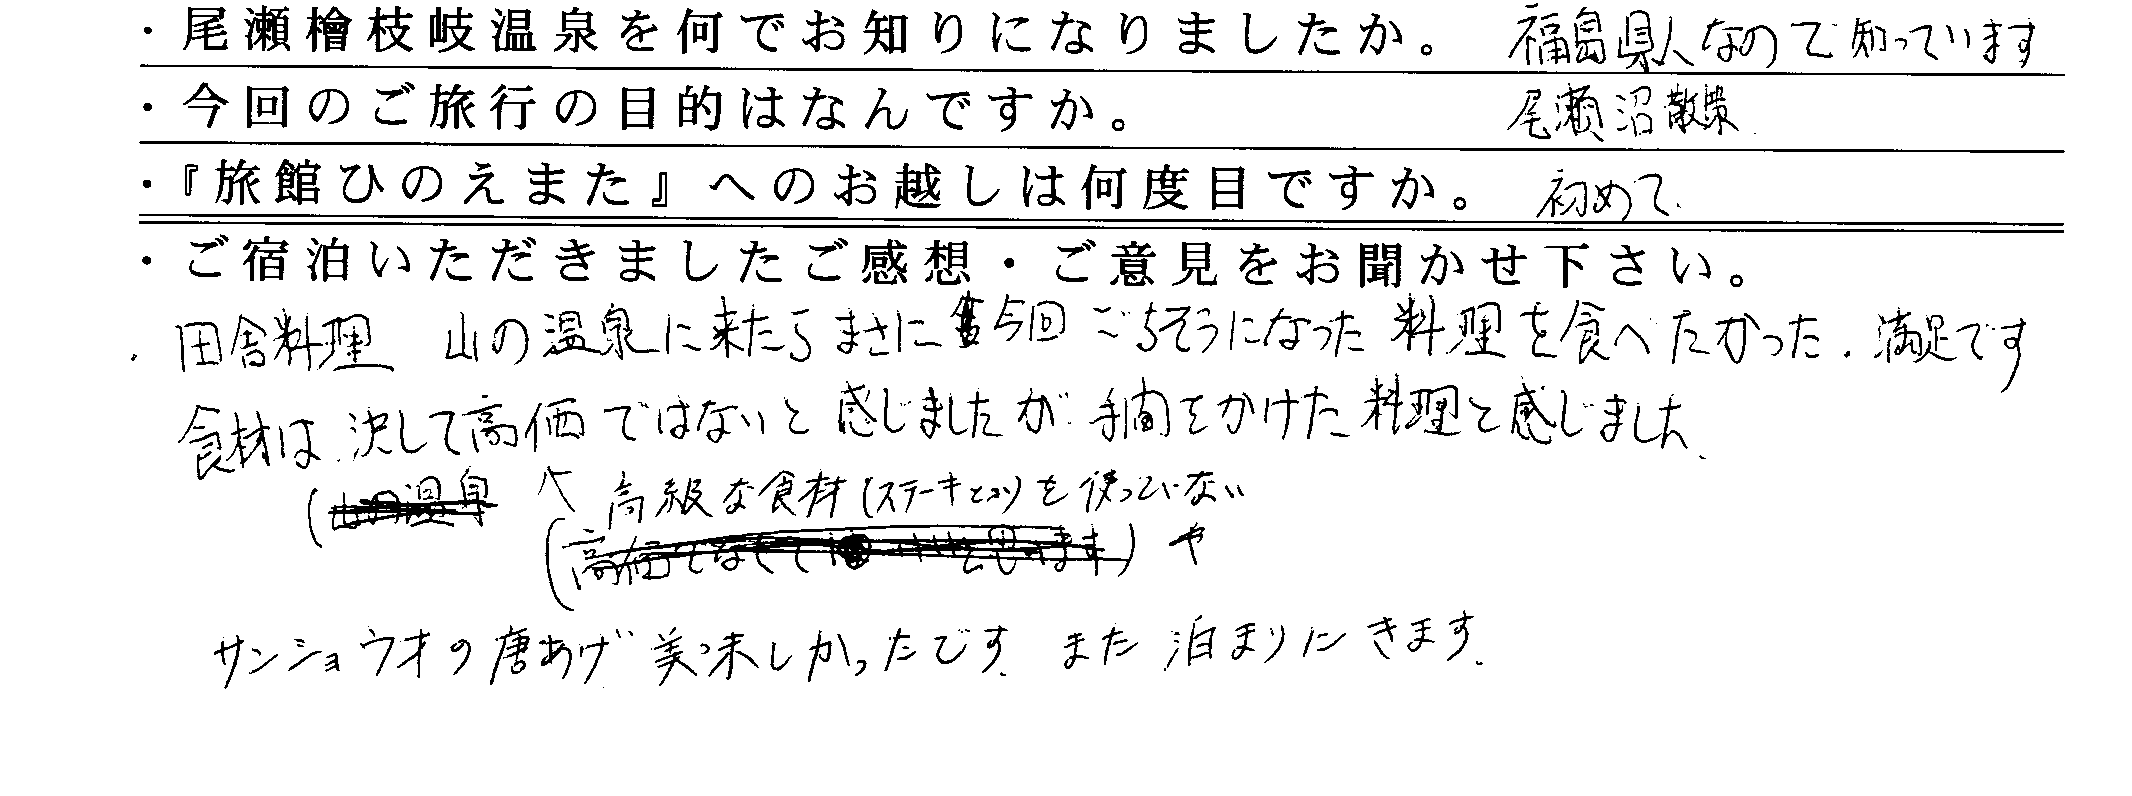 ・尾瀬檜枝岐温泉を何でお知りになりましたか。 福島県人なので知っています
・今回のご旅行の目的はなんですか。 尾瀬沼散策.
・『旅館ひのえまた』へのお越しは何度目ですか。 初めて.
・ご宿泊いただきましたご感想・ご意見をお聞かせ下さい。
・田舎料理 山の温泉に来たらまさに今回ごちそうになった料理を食べたかった.満足です
食材は.決して高価ではないと感じましたが手間をかけた料理と感じました.
(山の温泉 へ 高級な食材(ステーキとか)を使っていない
(高価でなくて と思います) や
サンショウウオの唐あげ美味しかったです.また泊まりにきます.